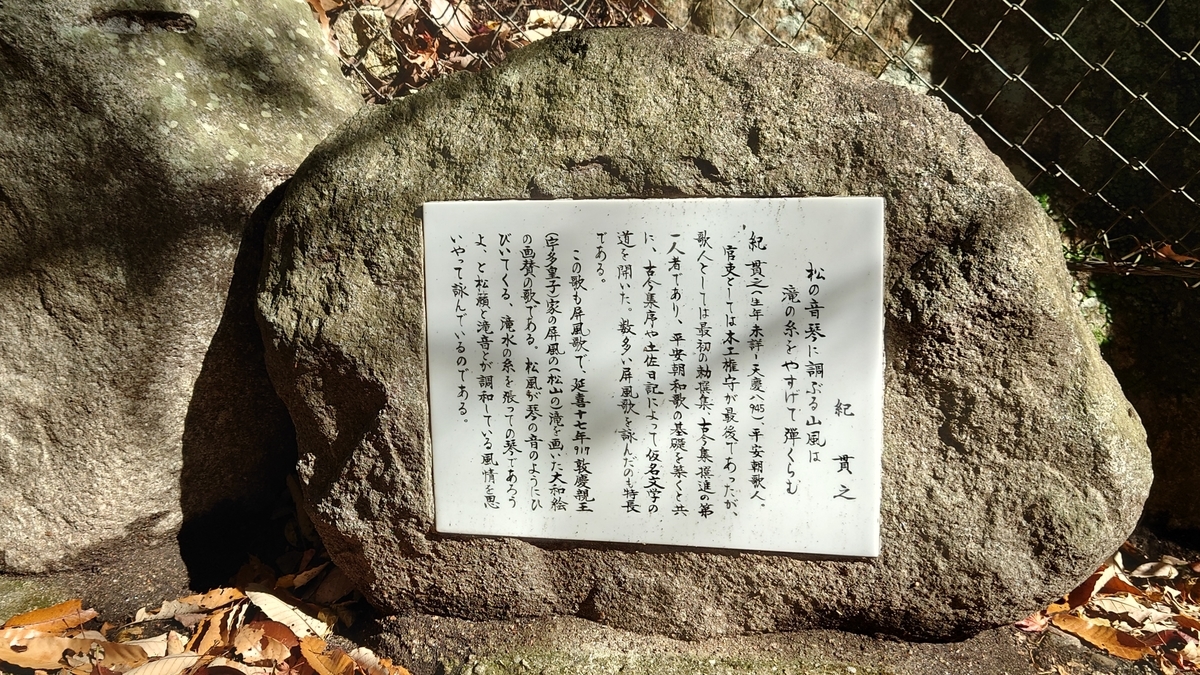 紀 貫之
松の音琴に調ぶる山風は
滝の糸をやすげて弾くらむ
紀貫之(生年未詳-天慶八945)平安朝歌人。
官吏としては木工権守が最後であったが、
歌人としては最初の勅撰集、古今集撰進の第
一人者であり、平安朝和歌の基礎を築くと共
に、古今集序や土佐日記によって仮名文学の
道を開いた。数多い屏風歌を詠んだのも特長
である。
この歌も屏風歌で、延喜十七年917敦慶親王
(宇多皇子)家の屏風の(松山の)滝を画いた大和絵
の画賛の歌である。松風が琴の音のようにひ
びいてくる、滝水の糸を張っての琴であろう
よ、と松籟と滝音とが調和している風情を思
いやって詠んでいるのである。